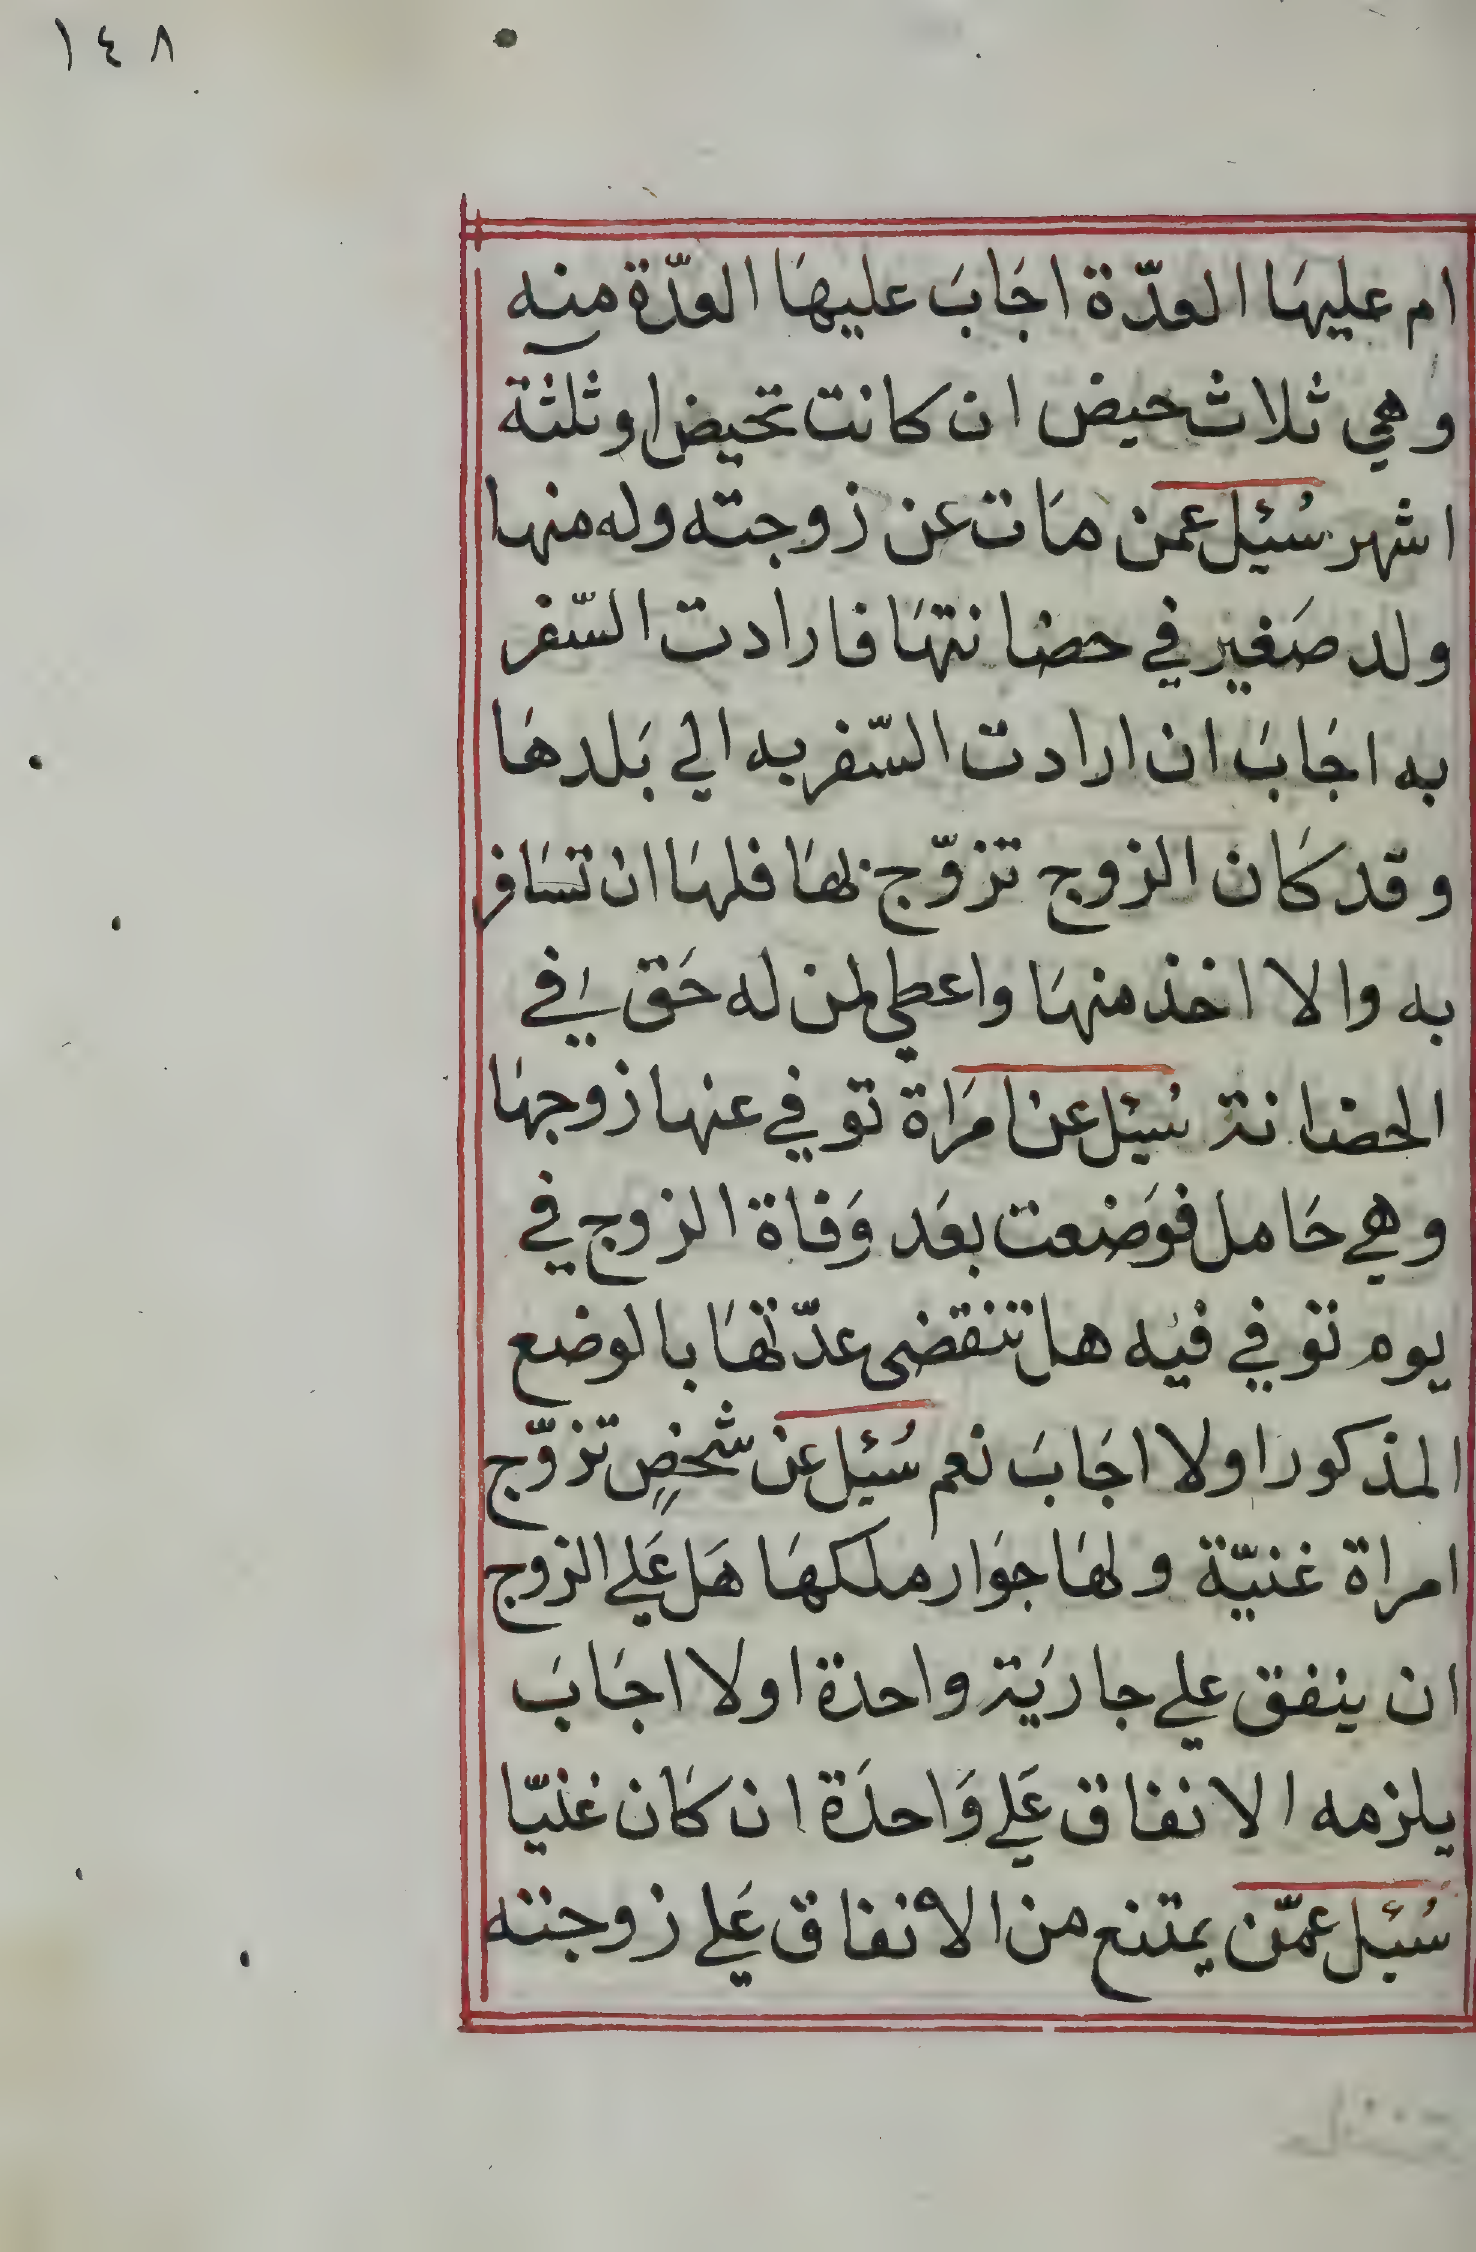 ١٤٨
ام عليهَا العدّة اجَابَ عليهَا العدّة منه
وهي ثلاث حيض ان كانت تحيض او ثلثة
اشهر سُئِل عمن مَات عن زوجته وله منها
ولد صَغير في حضانتهَا فارادت السّفر
به اجَابَ ان ارادت السّفر به الي بَلدهَا
وقد كَان الزوج تزوّج بهَا فلهَا ان تسَافر
به والا اخذ منهَا واعطي لمن له حَق في
الحضانة سُئِل عن امرَاة توفي عنها زوجهَا
وهي حَامل فوَضعت بعَد وَفاة الزوج في
يوم توفي فيه هل تنقضي عدّتهَا بالوضع
المذكور اولا اجَابَ نعم سُئِل عن شخصٍ تزوّج
امراة غنيّة ولهَا جوَار ملكهَا هَل عَلي الزوج
ان ينفق علي جاريَة واحدة اولا اجَابَ
يلزمه الانفاق عَلي وَاحدَة ان كَان غنيّا
سُئِل عمّن يمتنع من الانفاق عَلي زوجته